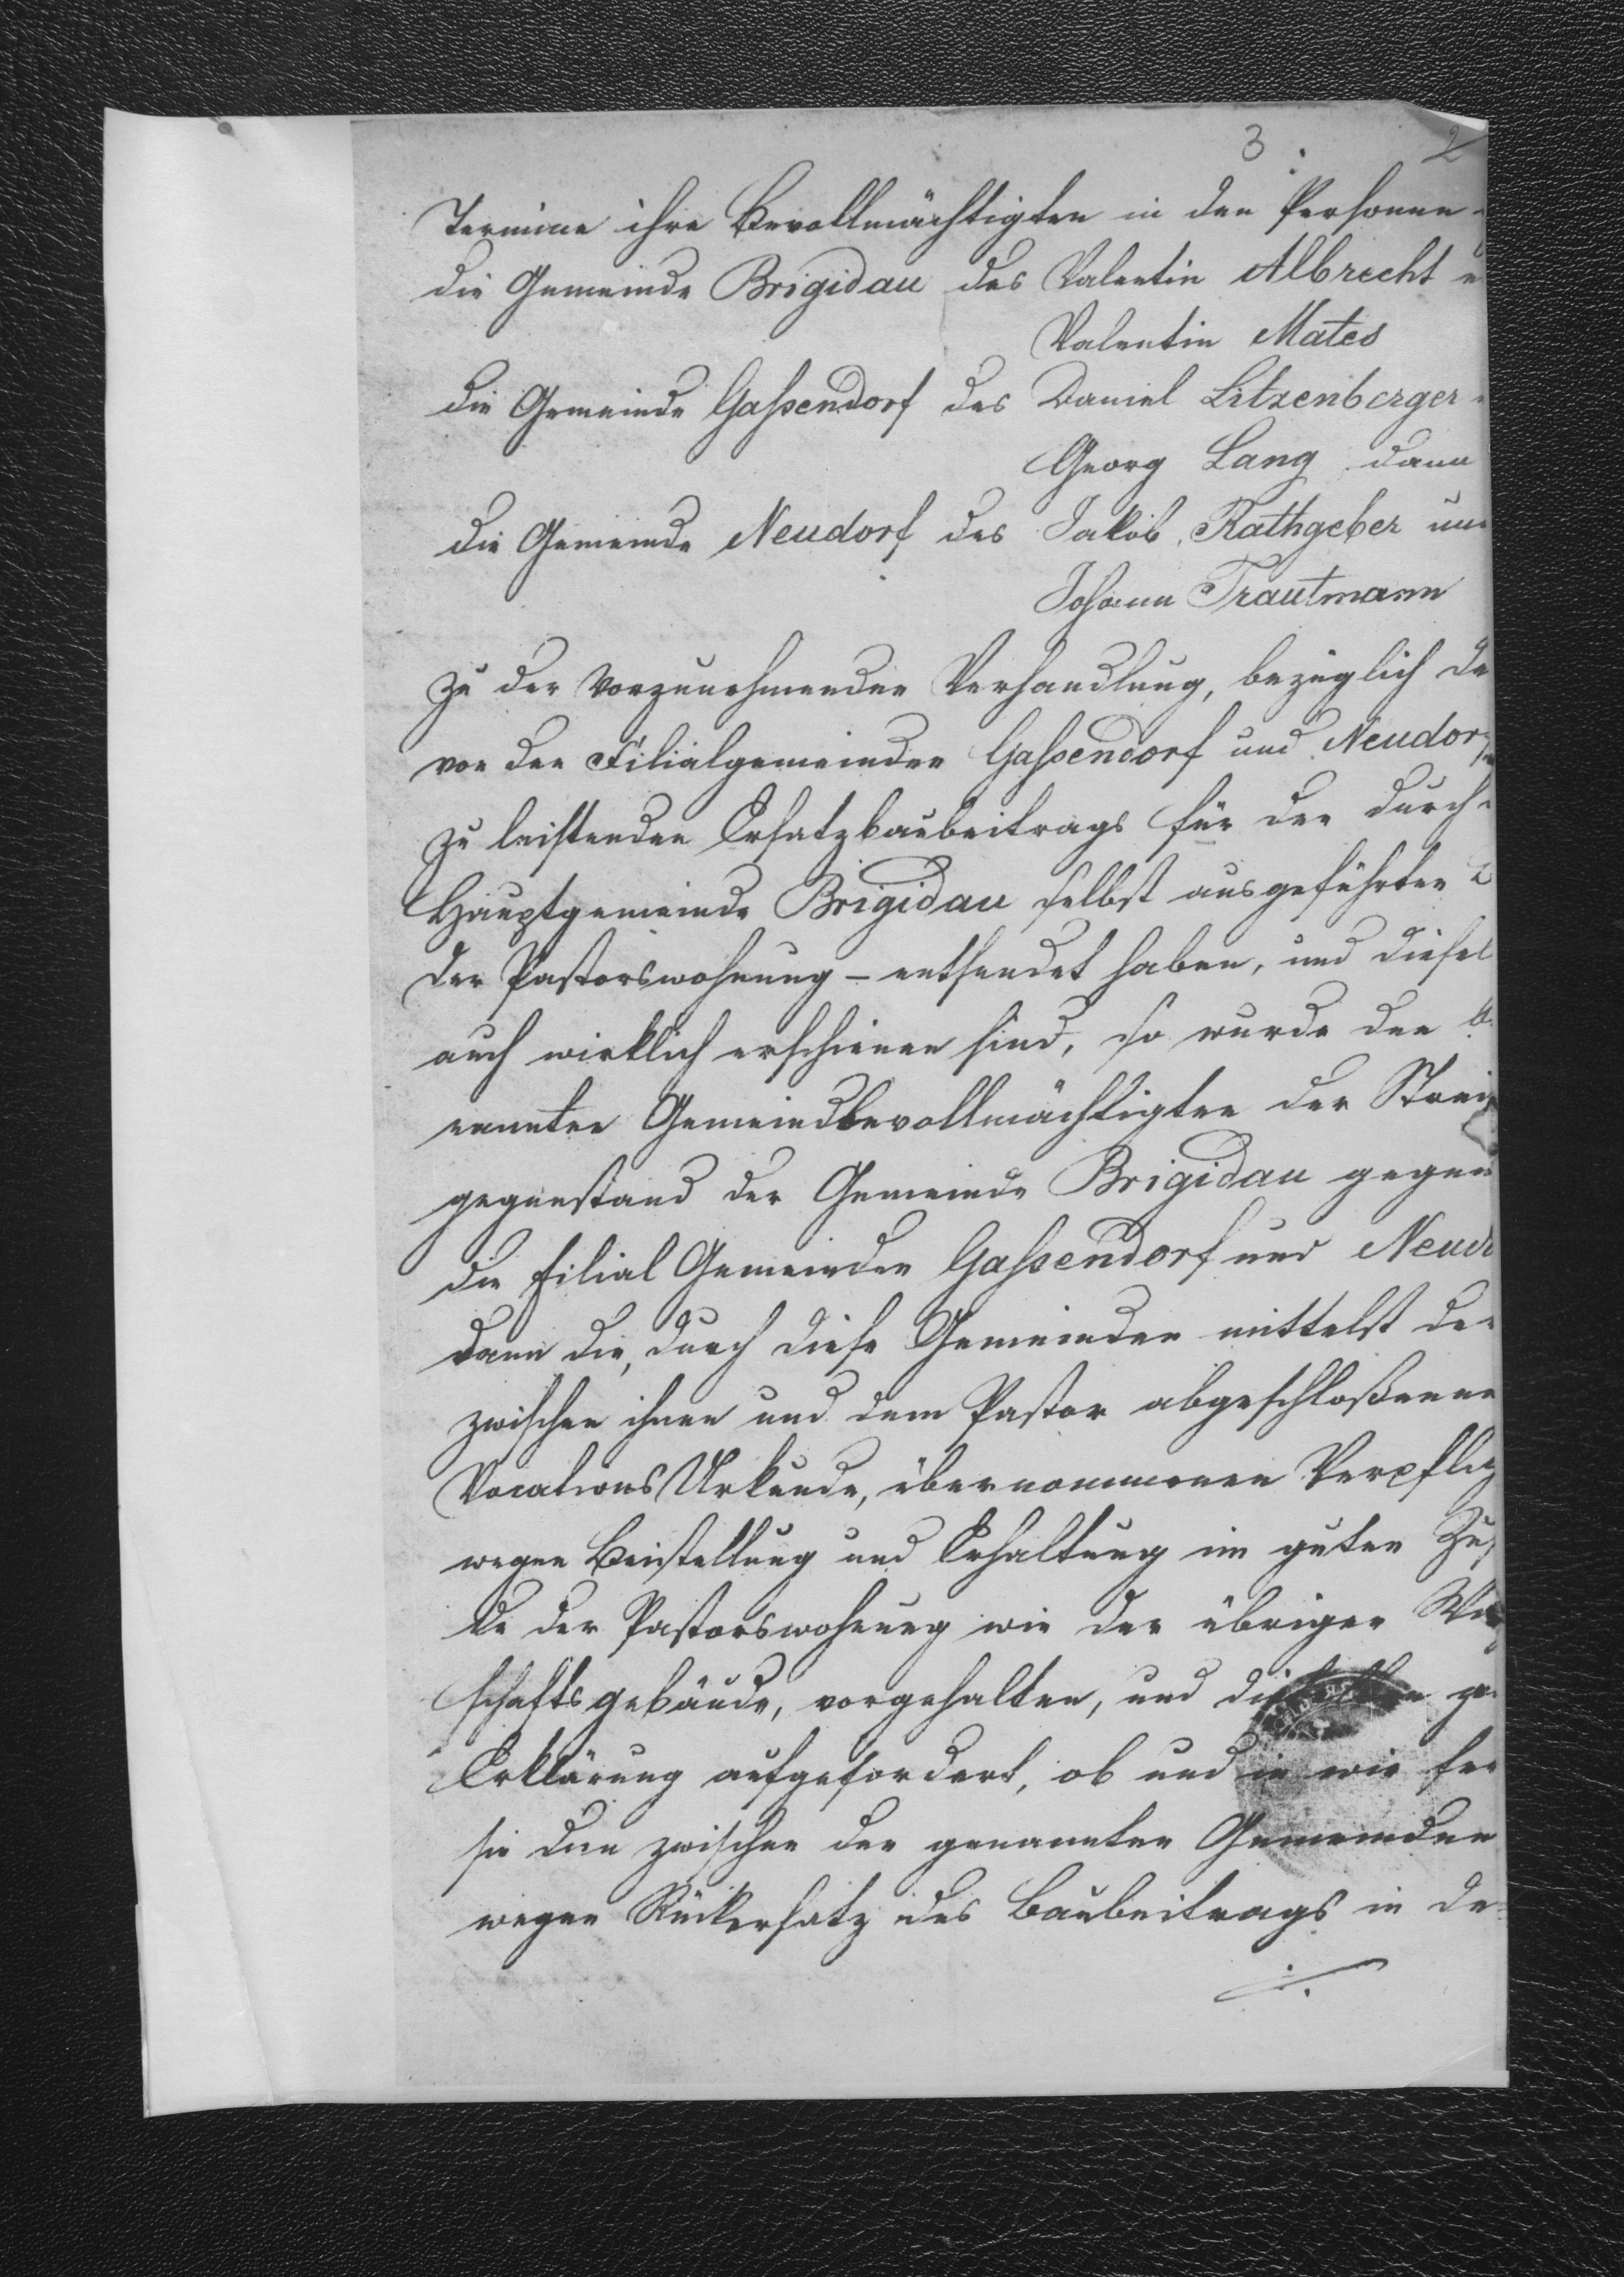 3 2
Termine ihre Bevollmächtigten in den Personen
die Gemeinde Brigidau des Valentin Albrecht u
Valentin Mates
die Gemeinde Gaßendorf des Daniel Litzenberger
Georg Lang dann
die Gemeinde Neudorf des Jakob Rathgeber un
Johann Trautmann
zu der vorzunehmenden Verhandlung, bezüglich de
von den Filialgemeinden Gaßendorf und Neudorf
zu leistenden Ersatzbaubeitrags für den durch
Hauptgemeinde Brigidau selbst ausgeführten
der Pastorswohnung – entsendet haben, und diesel
auch wirklich erschienen sind, so wurde den b
nannten Gemeindbevollmächtigten der Strei
gegenstand der Gemeinde Brigidau gegen
die filial Gemeinden Gaßendorf und Neud
dann die, durch diese Gemeinden mittelst der
zwischen ihnen und dem Pastor abgeschloßenen
Vocations Urkunde, übernommenen Verpflig
wegen Beistellung und Erhaltung im guten Zus
de der Pastorswohnung wie der übrigen Wi
schaftsgebäude, vorgehalten, und dieselben zu
Erklärung aufgefordert, ob und in wie fer
sie den zwischen den genannten Gemeinden
wegen Rückersatz des Baubeitrags in de